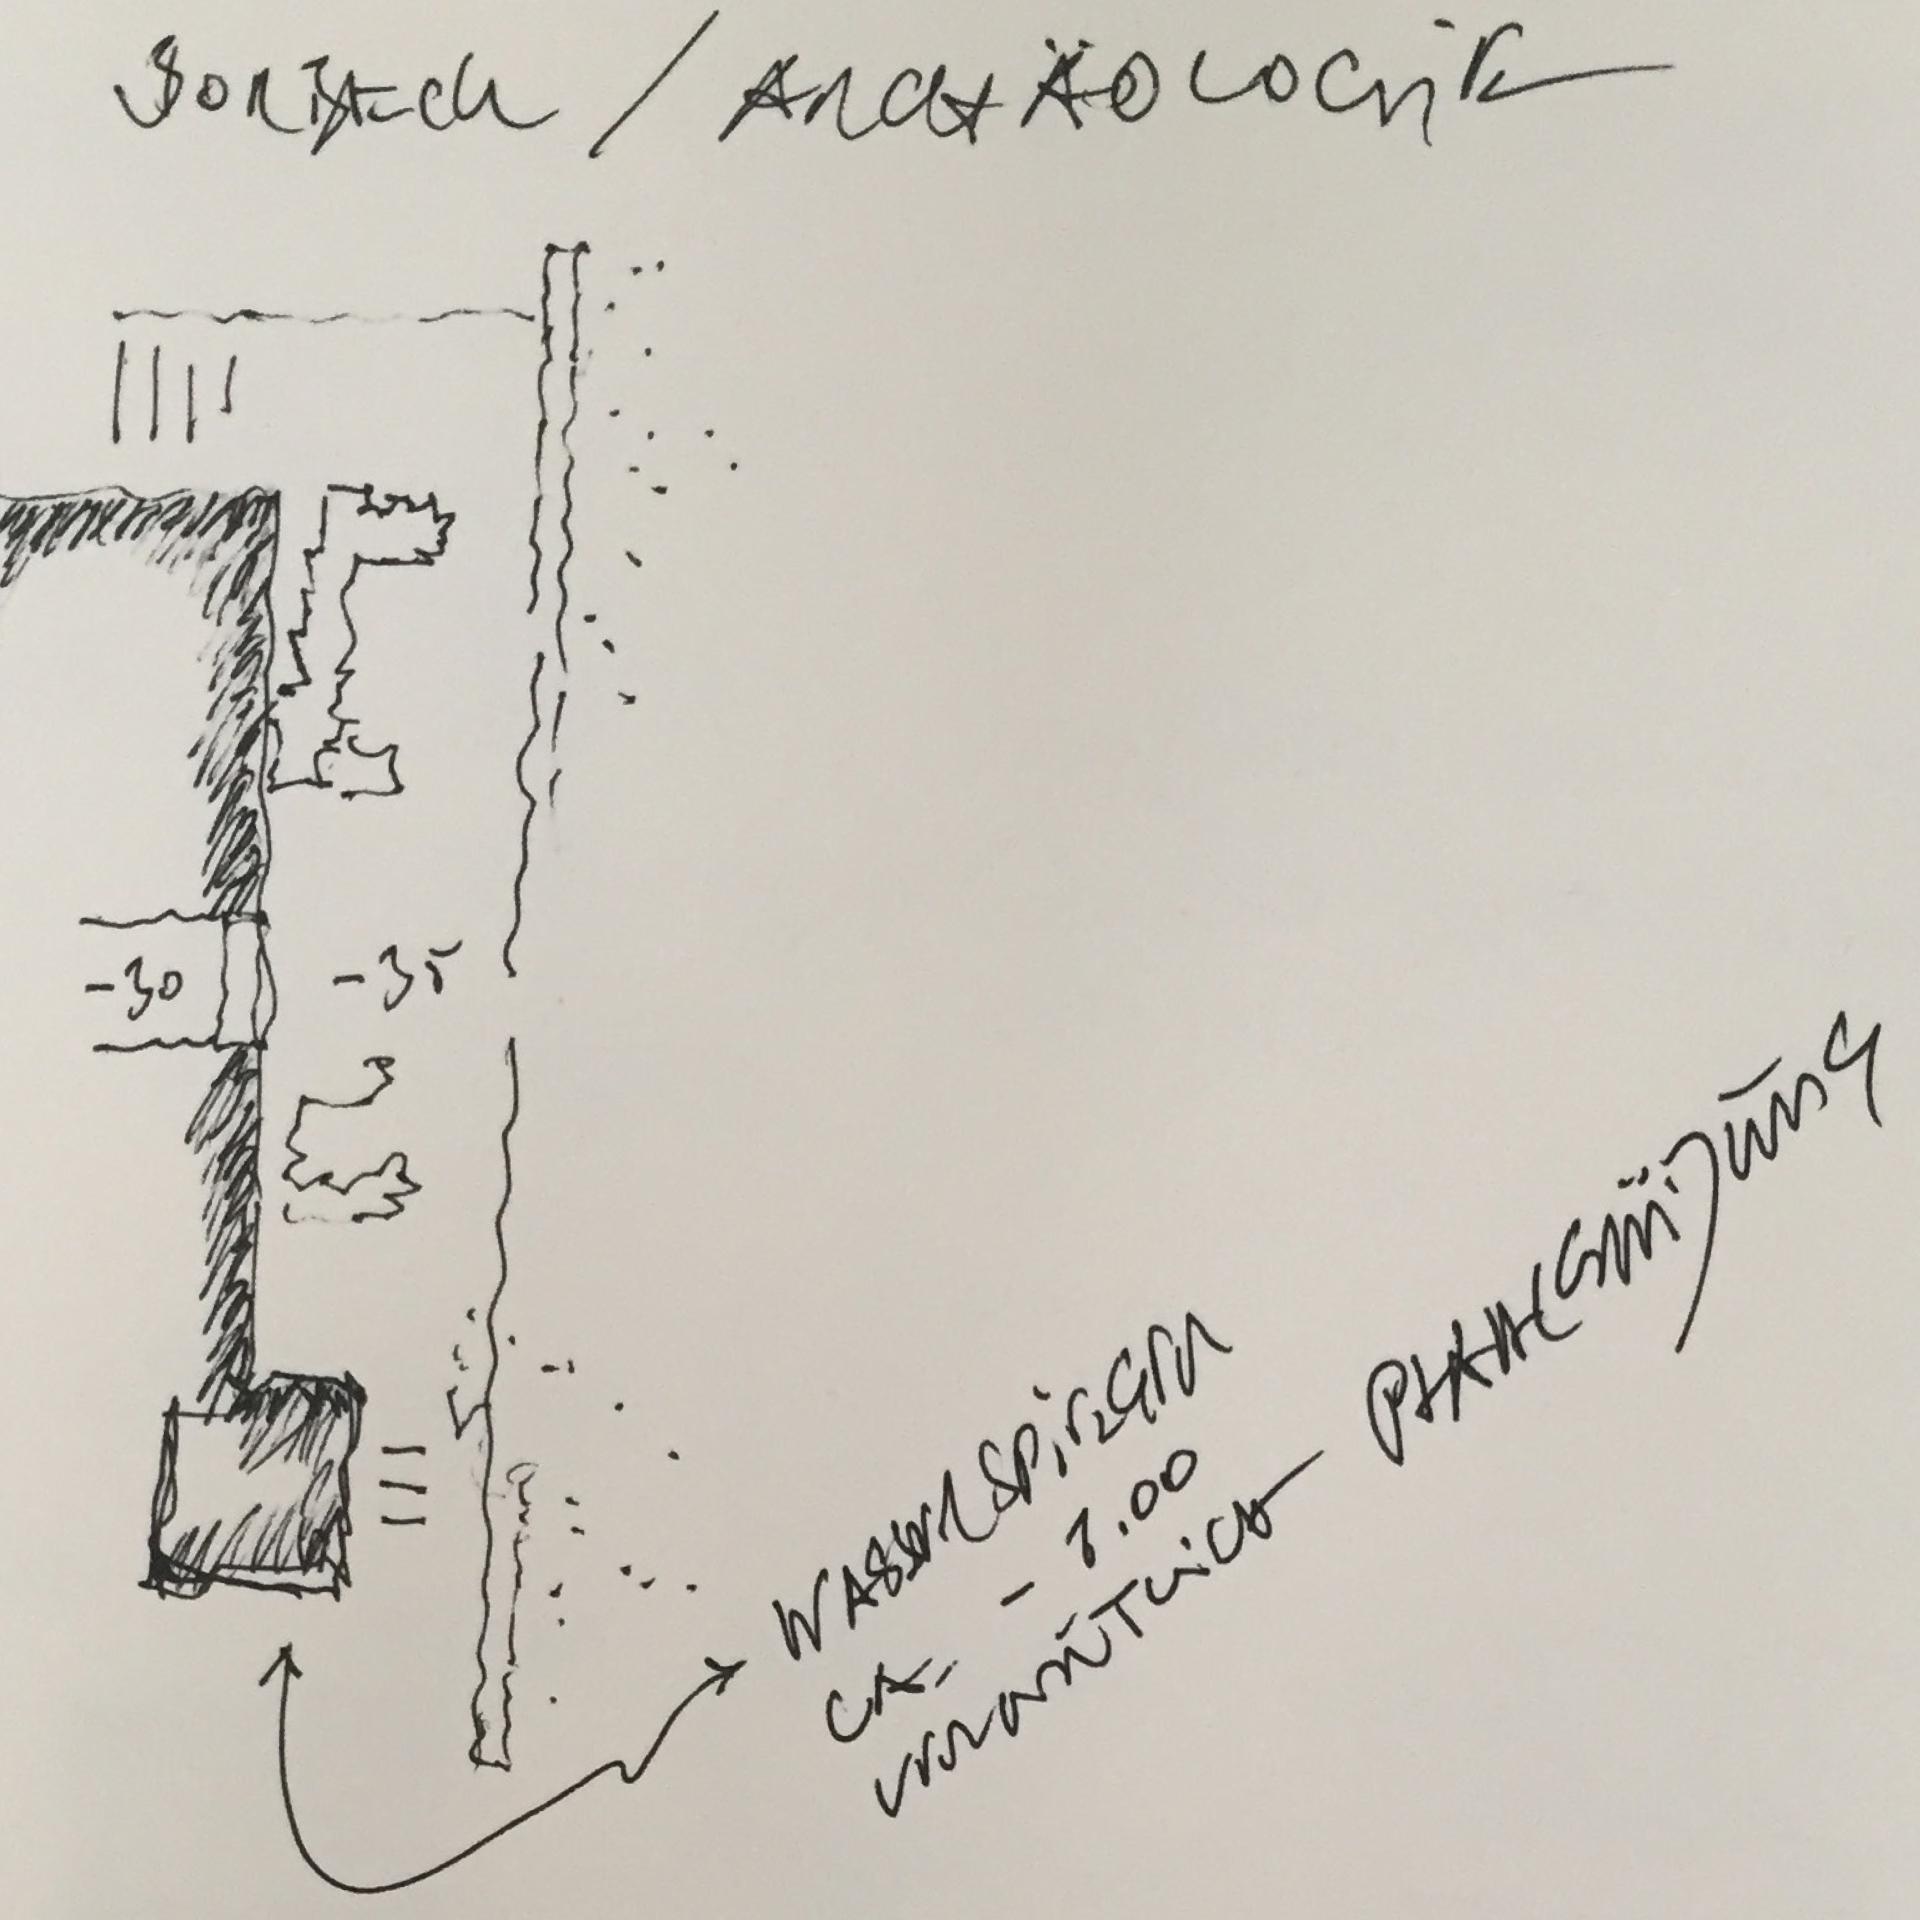 SORBACH / ARCHÄOLOGIE
-30
-35
WASSERSPIEGEL
CA. - 1.00
VERMUTLICH PFAHLGRÜNDUNG